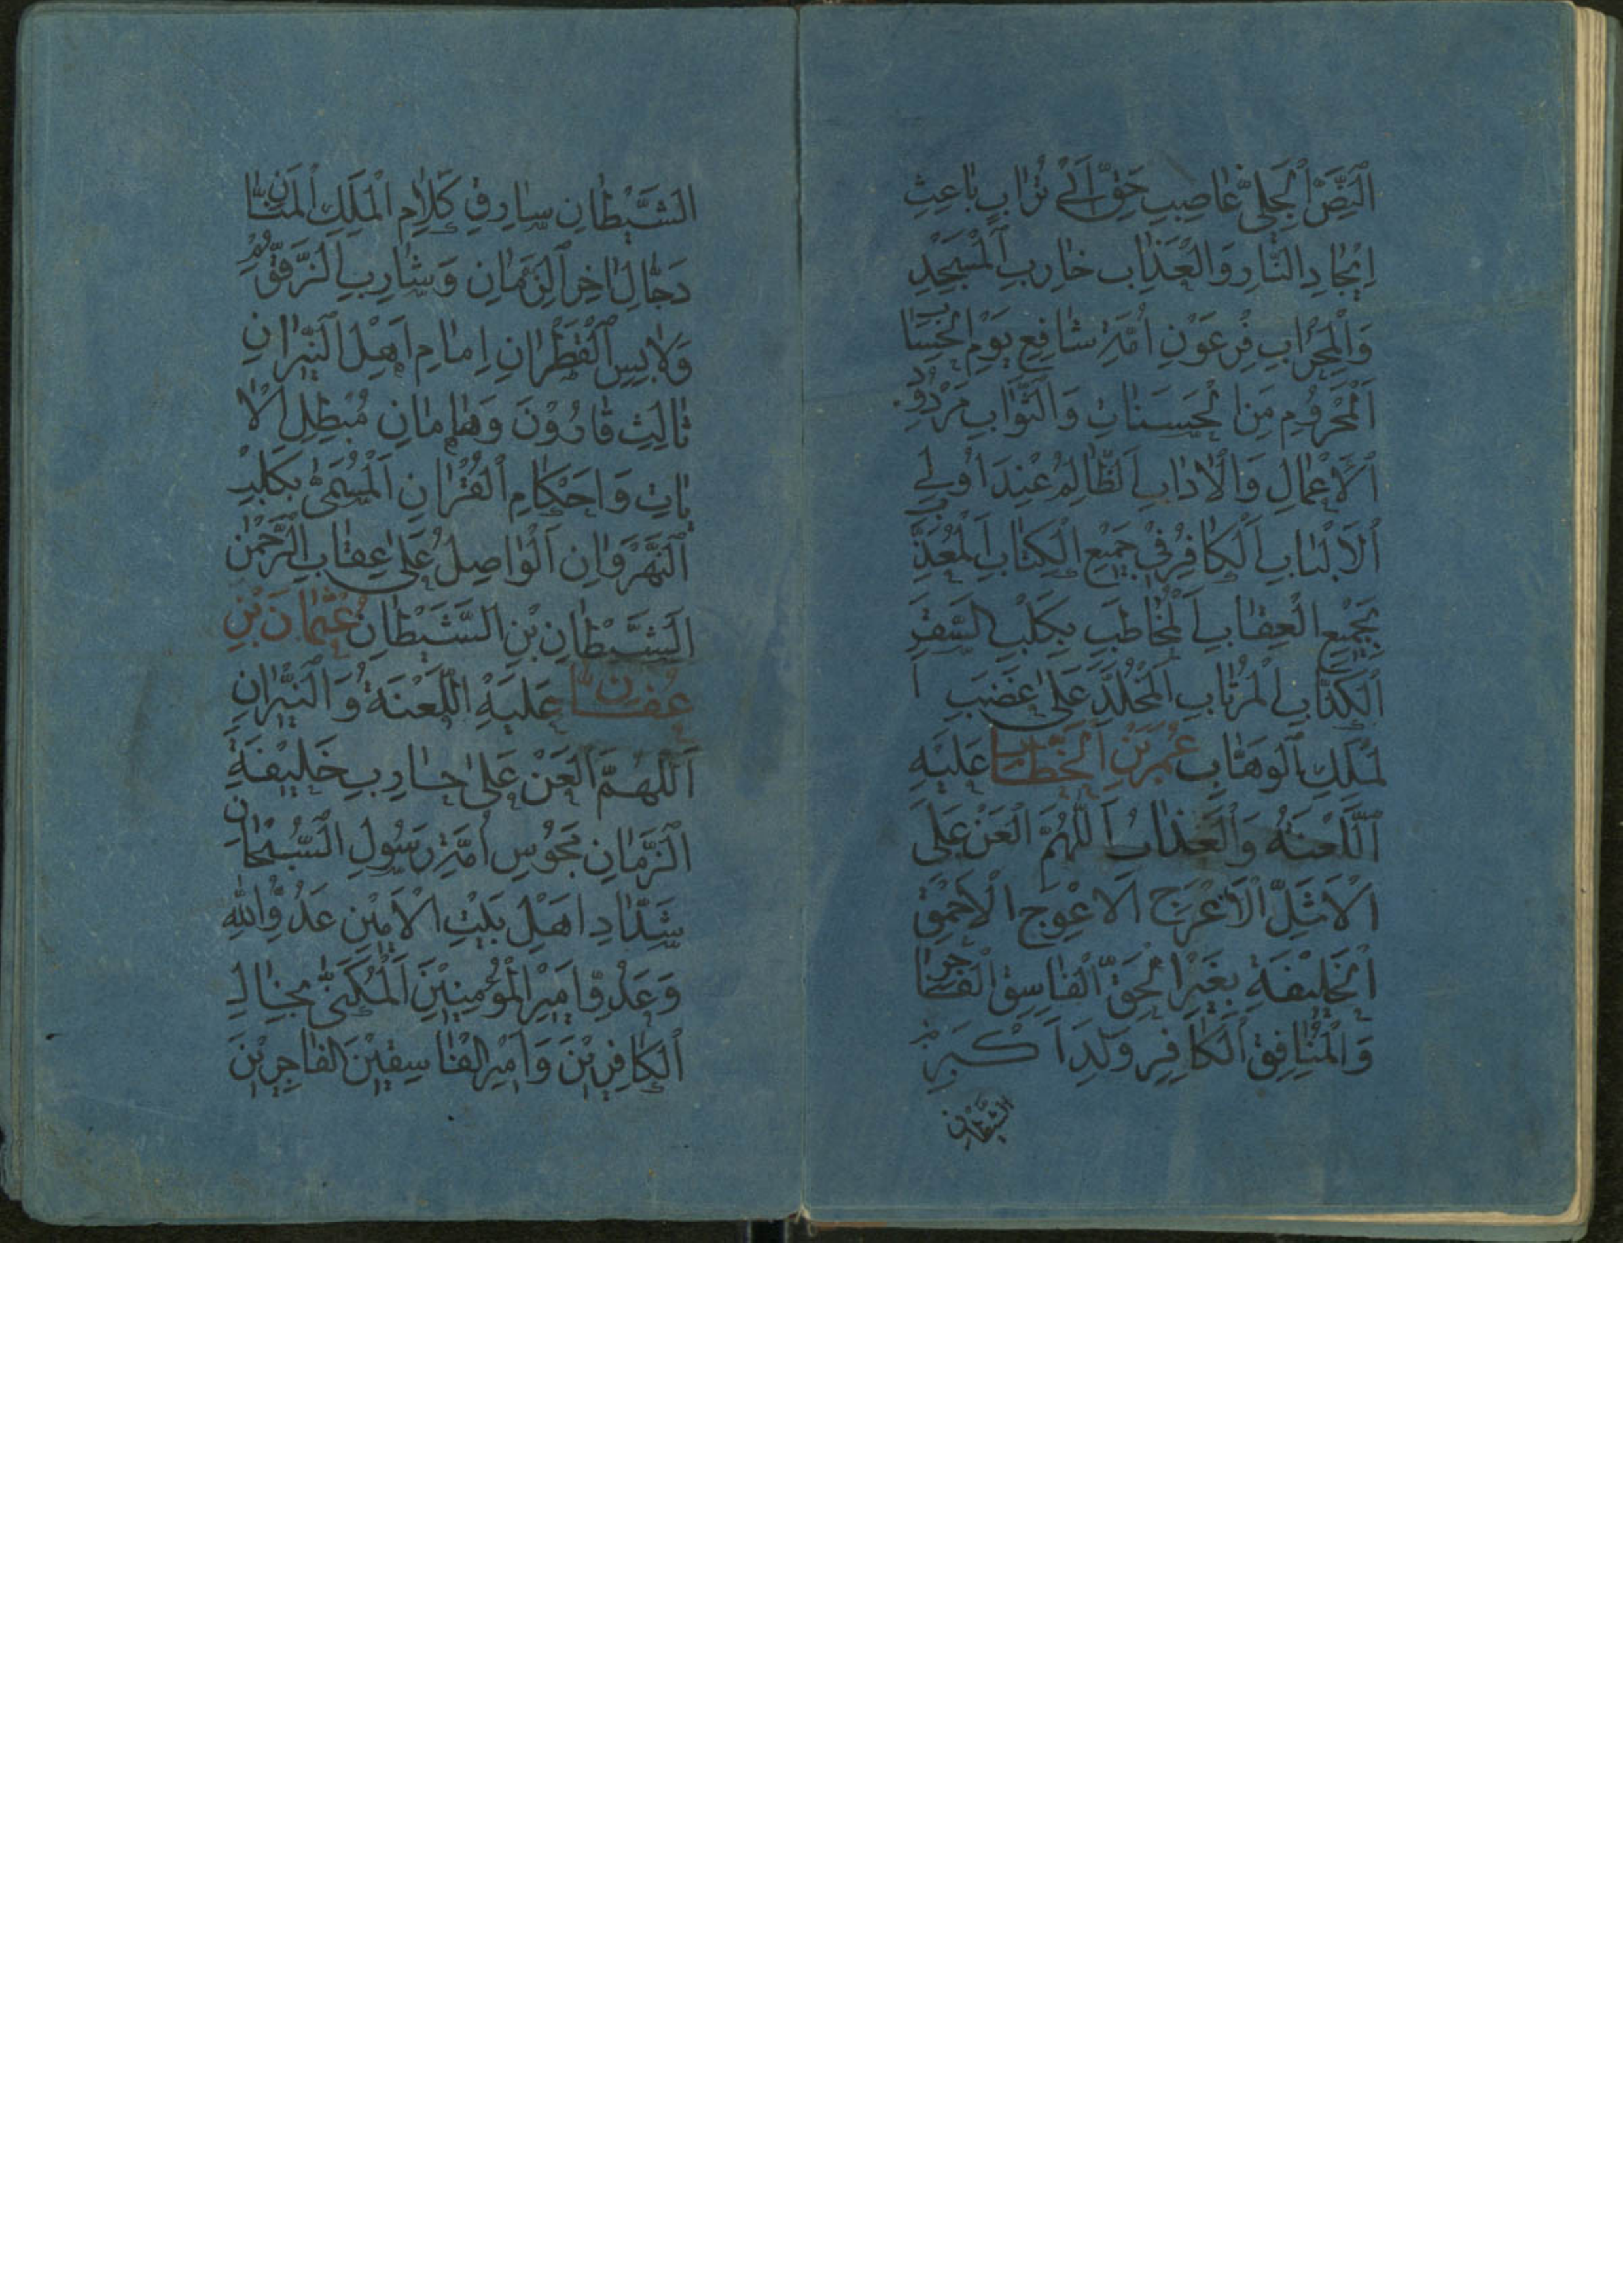 اَلنَّصِّ الْجَلِیِّ غَاصِبِ حَقِّ اَبِی تُرَابٍ بَاعِثِ
اِیْجَادِ النَّارِ وَالْعَذَابِ خَارِبِ الْمَسْجِدِ
وَالْمِحْرَابِ فِرْعَوْنِ اُمَّةِ شَافِعِ یَوْمِ الْحِسَابِ
اَلْمَحْرُوْمِ مِنَ الْحَسَنَاتِ وَالثَّوَابِ مَرْدُوْدِ
الْاَعْمَالِ وَالْاٰدَابِ اَلظَّالِمِ عِنْدَ اُولِی
الْاَلْبَابِ اَلْکَافِرِ فِیْ جَمِیْعِ الْکِتَابِ اَلْمُعَذَّبِ
بِجَمِیْعِ الْعِقَابِ اَلْمُخَاطَبِ بِکَلْبِ السَّقَرِ
اَلْکَذَّابِ الْمُرْتَابِ الْمُخَلَّدِ عَلٰی غَضَبِ ا
لْمَلِکِ الْوَهَّابِ عُمَرَ بْنِ الْخَطَّابِ عَلَیْهِ
اللَّعْنَةُ وَالْعَذَابُ اَللّٰهُمَّ الْعَنْ عَلَی
الْاَشَلِّ الْاَعْرَجِ الْاَعْوَجِ الْاَحْمَقِ
الْخَلِیْفَةِ بِغَیْرِ الْحَقِّ الْفَاسِقِ الْفَاجِرِ
وَالْمُنَافِقِ الْکَافِرِ وَلَدِ اَکْبَرِ
الشَّیْطَانِ
الشَّیْطَانِ سَارِقِ کَلَامِ الْمَلِکِ الْمَنَّانِ
دَجَّالِ اٰخِرِ الزَّمَانِ وَشَارِبِ الزَّقُّوْمِ
وَلَابِسِ الْقَطِرَانِ اِمَامِ اَهْلِ النِّیْرَانِ
ثَالِثِ قَارُوْنَ وَهَامَانِ مُبْطِلِ الْاٰ
یَاتِ وَاَحْکَامِ الْقُرْاٰنِ اَلْمُسَمّٰی بِکَلْبِ
النَّهْرَوَانِ اَلْوَاصِلِ عَلٰی عِقَابِ الرَّحْمٰنِ
الشَّیْطَانِ بْنِ الشَّیْطَانِ عُثْمَانَ بْنِ
عُفَّانَ عَلَیْهِ اللَّعْنَةُ وَالنِّیْرَانِ
اَللّٰهُمَّ الْعَنْ عَلٰی حَارِبِ خَلِیْفَةِ
الزَّمَانِ مَجُوْسِ اُمَّةِ رَسُوْلِ السُّبْحَانِ
شَدَّادِ اَهْلِ بَیْتِ الْاَمِیْنِ عَدُوِّ اللّٰهِ
وَعَدُوِّ اَمِیْرِ الْمُؤْمِنِیْنَ اَلْمُکَنّٰی بِخَالِ
الْکَافِرِیْنَ وَاَمِیْرِ الْفَاسِقِیْنَ الْفَاجِرِیْنَ